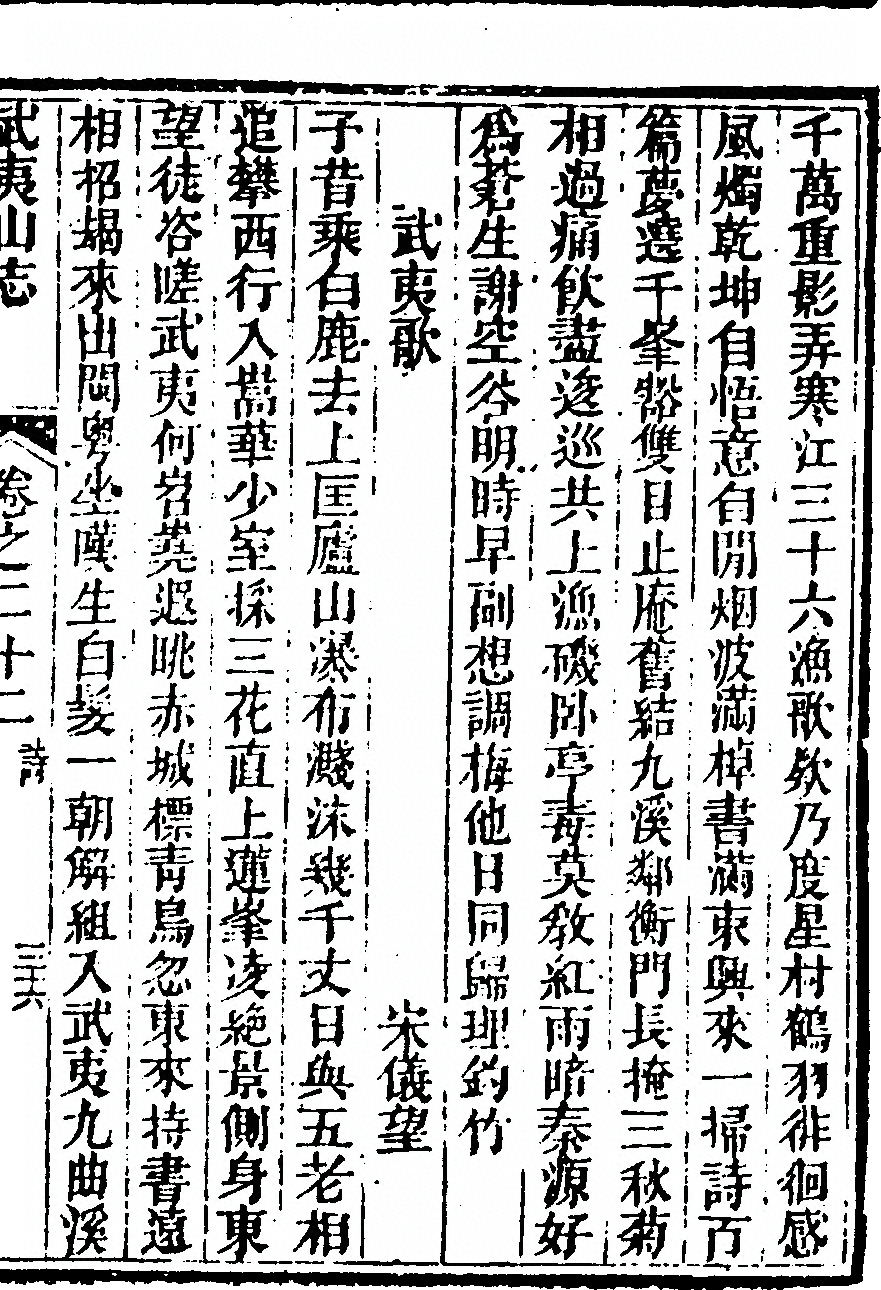 千萬重影弄寒江三十六漁歌欸乃度星村鶴羽徘徊感
風燭乾坤自悟意自閒烟波滿棹書滿束興來一掃詩百
篇夢遶千峯豁雙目止庵舊結九溪鄰衡門長掩三秋菊
相過痛飲盡逡巡共上漁磯卧亭毒莫教紅雨暗秦源好
爲蒼生謝空谷明時早副想調梅他日同歸理釣竹
武夷歌 宋儀望
予昔乘白鹿去上匡廬山瀑布濺沫幾千丈日與五老相
追攀西行入嵩華少室採三花直上蓮峯凌絕景側身東
望徒咨嗟武夷何岧蕘遐眺赤城標青鳥忽東來持書遠
相招朅來出閩粵坐嘆生白髮一朝解組入武夷九曲溪
武夷山志 卷之二十二 詩 三十六